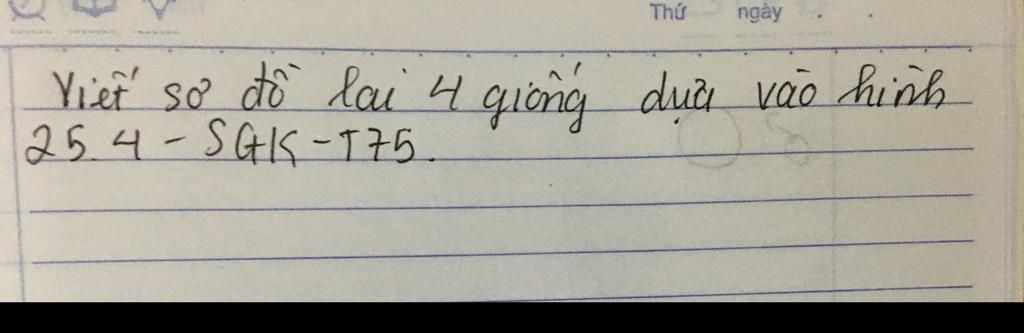 Thứ ngày . .
Viết sơ đồ lai 4 giống dựa vào hình
25.4 - SGK - T75.